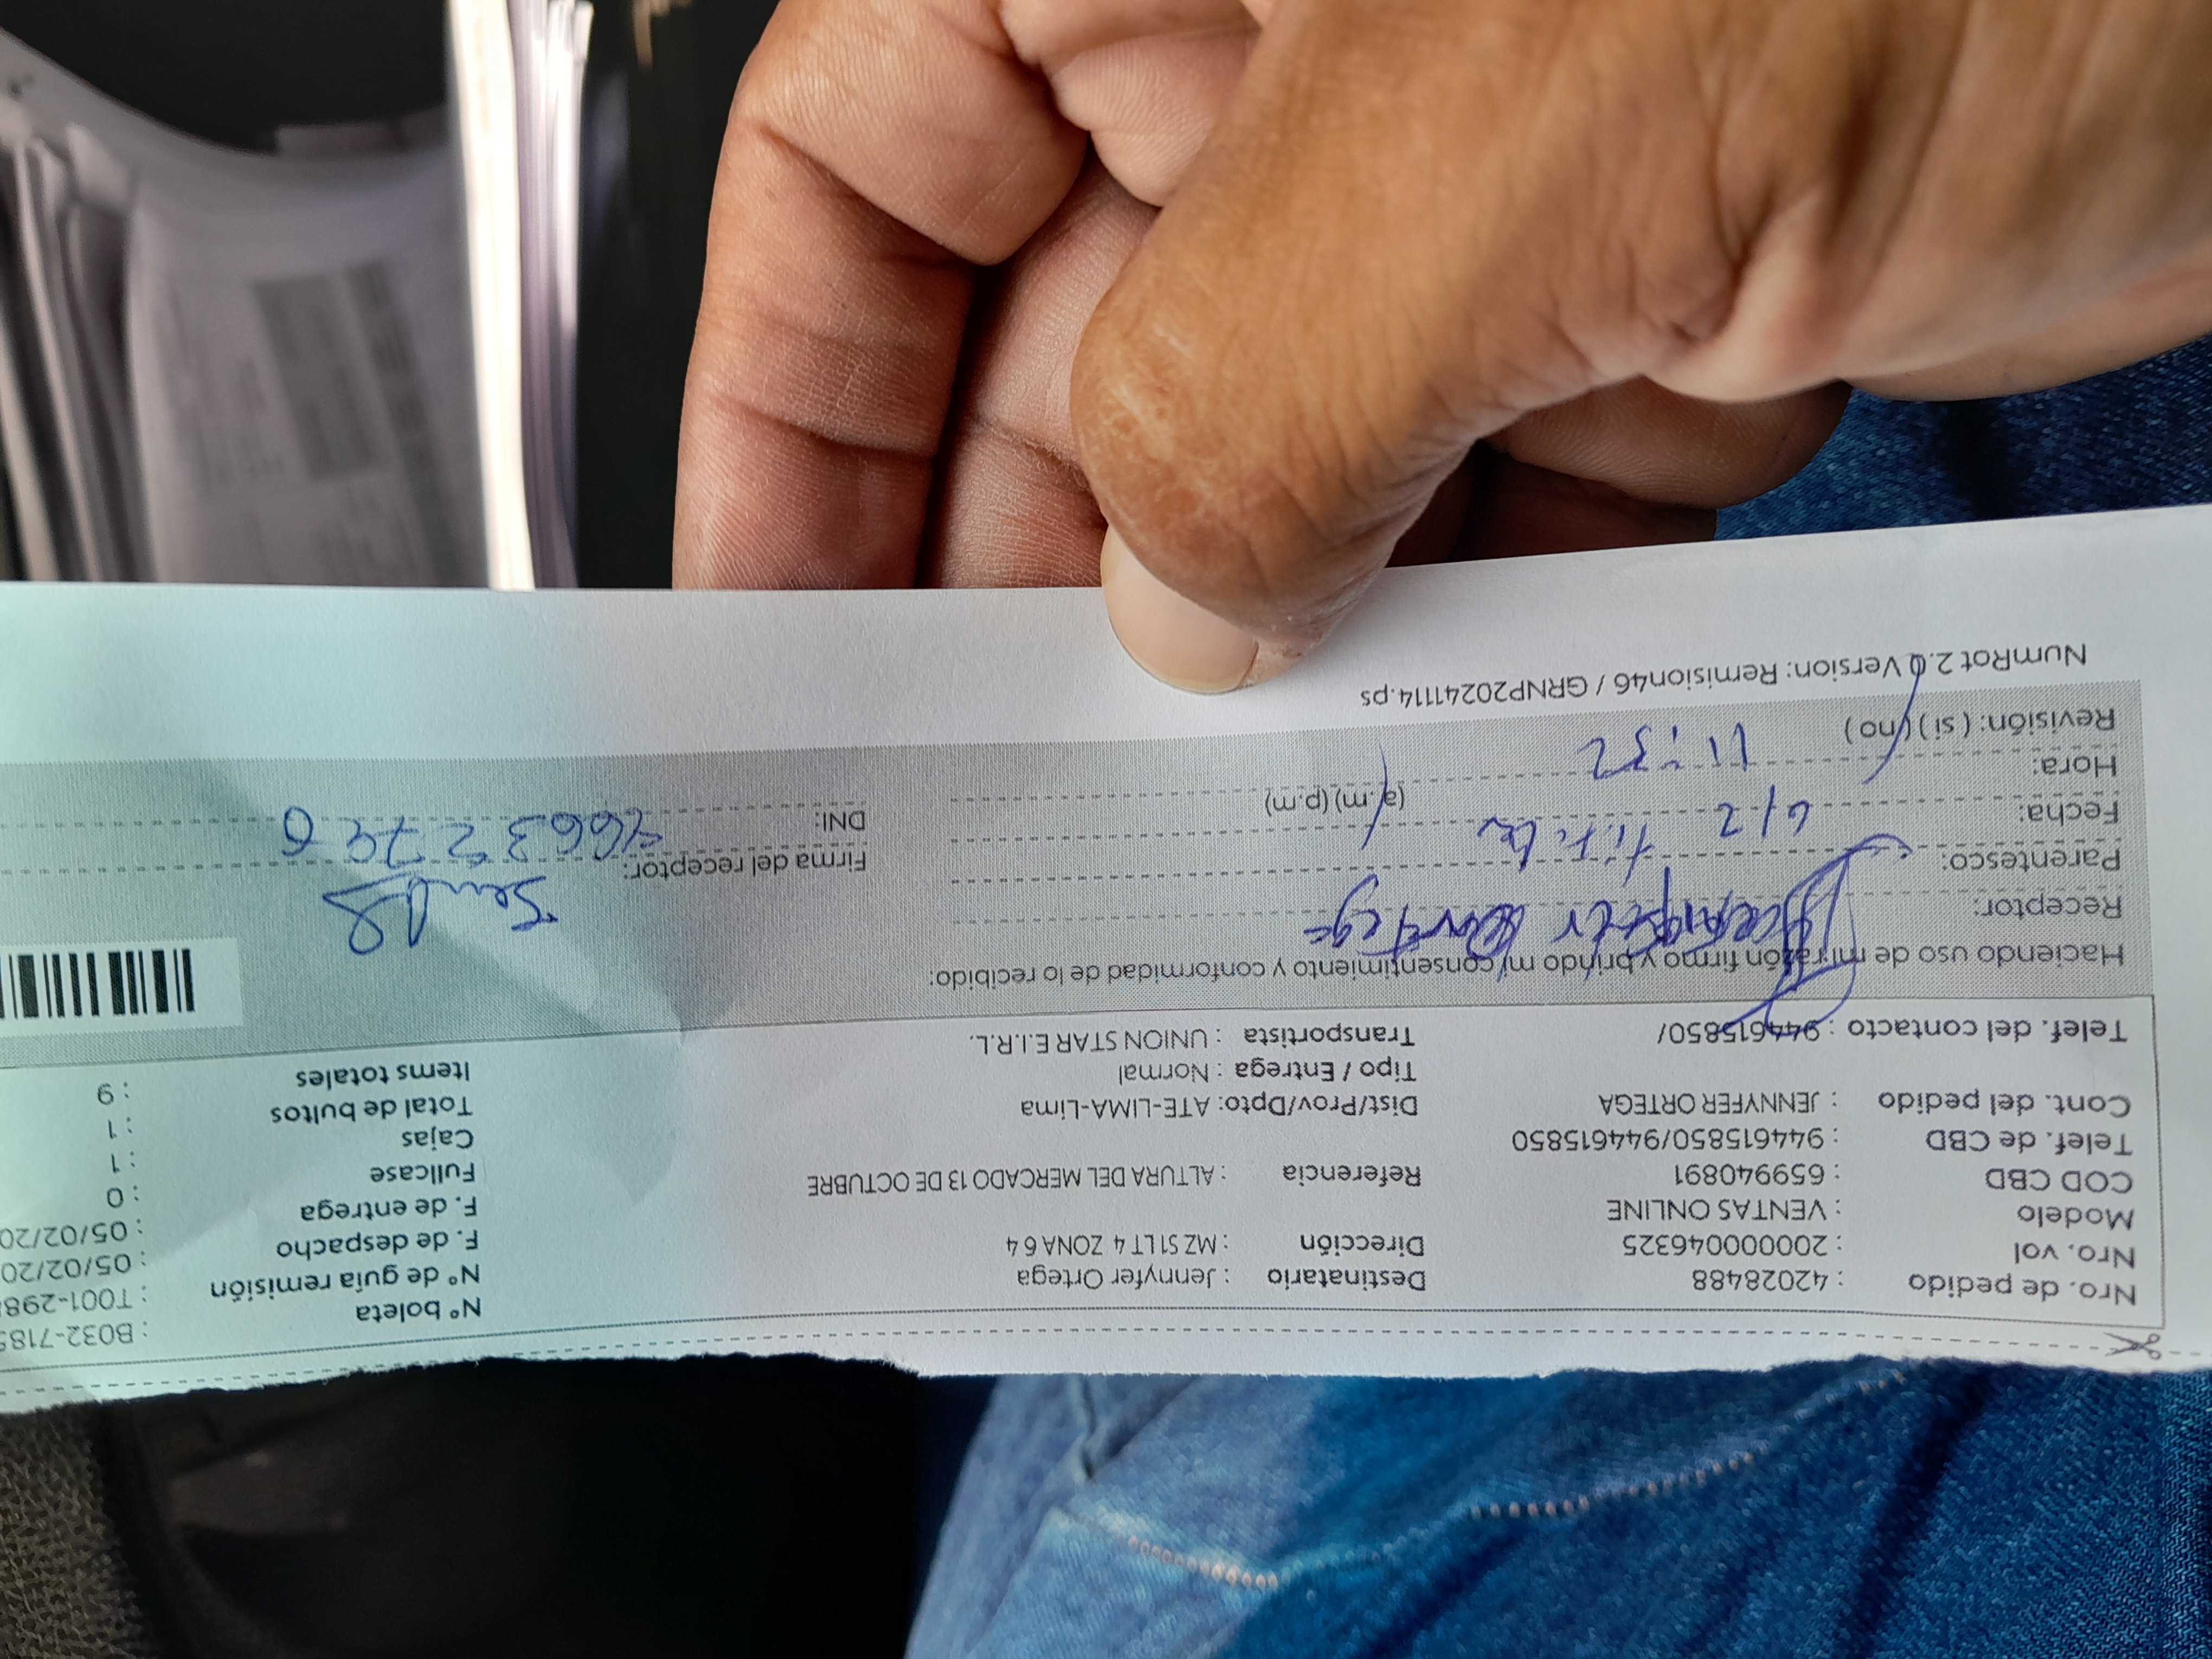 Nro. de pedido : 42028488
Nro. vol : 20000046325
Modelo : VENTAS ONLINE
COD CBD : 659940891
Telef. de CBD : 944615850/944615850
Cont. del pedido : JENNYFER ORTEGA
Telef. del contacto : 944615850/
Destinatario : Jennyfer Ortega
Dirección : MZ S1 LT 4 ZONA 6 4
Referencia : ALTURA DEL MERCADO 13 DE OCTUBRE
Dist/Prov/Dpto: ATE-LIMA-Lima
Tipo / Entrega : Normal
Transportista : UNION STAR E.I.R.L.
N° boleta : B032-718
N° de guía remisión : T001-298
F. de despacho : 05/02/20
F. de entrega : 05/02/20
Fullcase : 0
Cajas : 1
Total de bultos : 1
Items totales : 9
Haciendo uso de mi razón firmo y brindo mi consentimiento y conformidad de lo recibido:
Receptor:
Parentesco:
Fecha: 6/2
Hora: 11:52 (a.m) (p.m)
Revisión: (si) (no)
Firma del receptor:
DNI:
NumRot 2.0 Version: Remision46 / GRNP20241114.ps